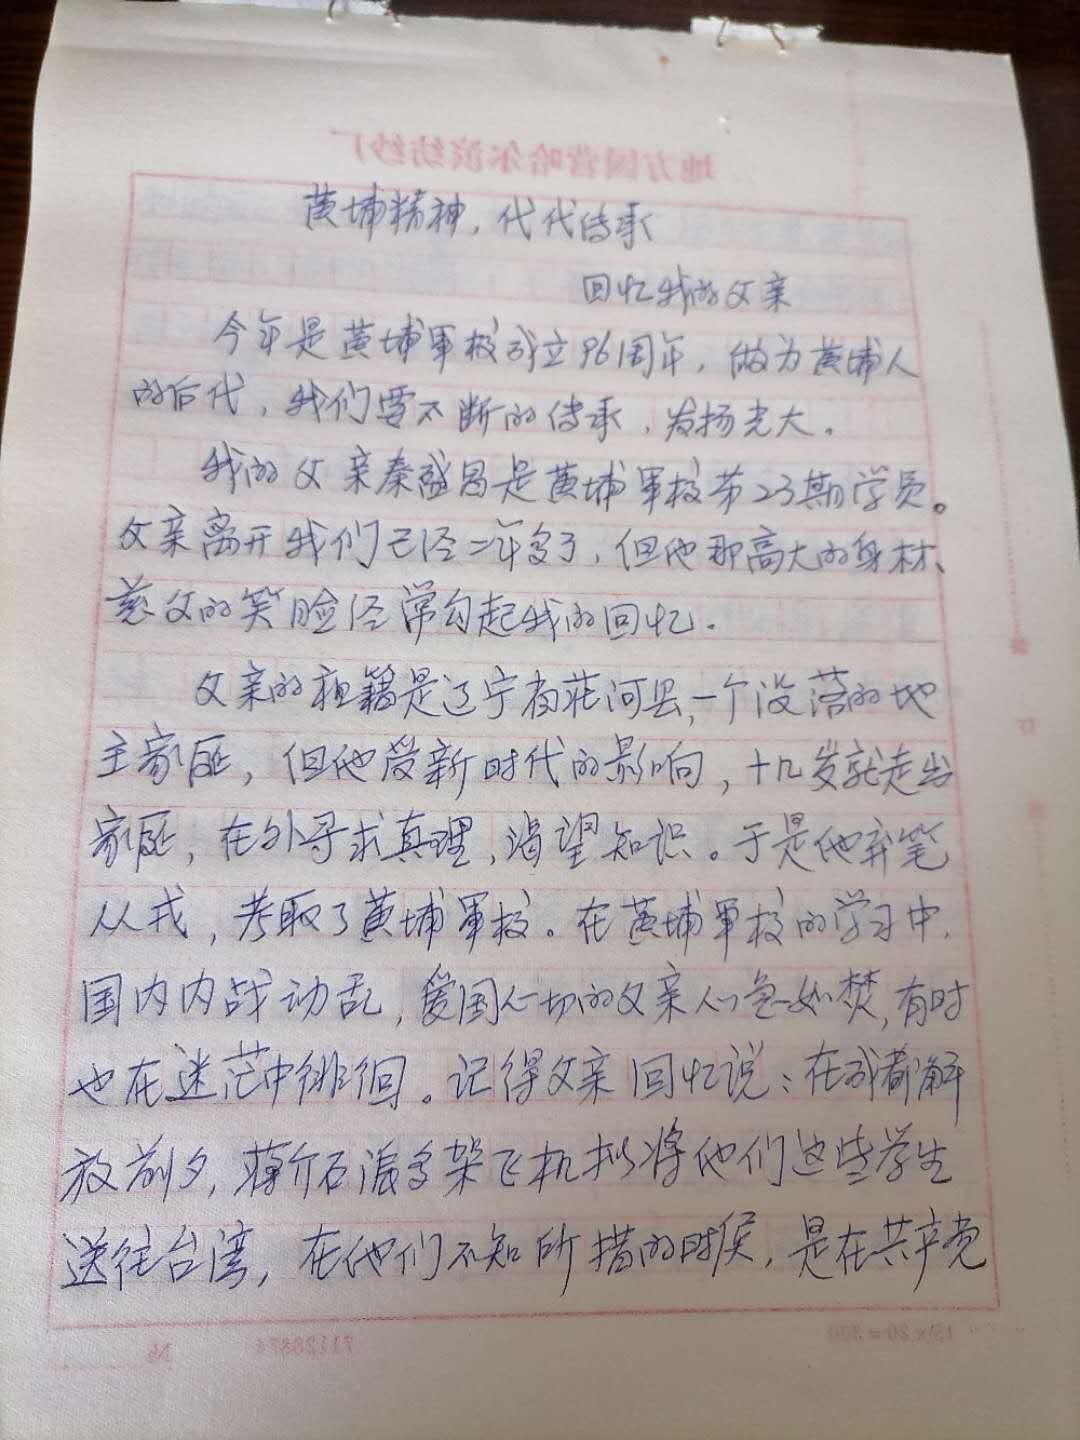 地方国营哈尔滨纺纱厂
黄埔精神，代代传承
回忆我的父亲
今年是黄埔军校成立96周年，做为黄埔人
的后代，我们要不断的传承，发扬光大。
我的父亲秦盛昌是黄埔军校第23期学员。
父亲离开我们已经二年多了，但他那高大的身材、
慈父的笑脸经常勾起我的回忆。
父亲的祖籍是辽宁省庄河县，一个没落的地
主家庭，但他受新时代的影响，十几岁就走出
家庭，在外寻求真理，渴望知识。于是他弃笔
从戎，考取了黄埔军校。在黄埔军校的学习中，
国内内战动乱，爱国心切的父亲心急如焚，有时
也在迷茫中徘徊。记得父亲回忆说：在成都解
放前夕，蒋介石派多架飞机拟将他们这些学生
送往台湾，在他们不知所措的时候，是在共产党
15×20=300